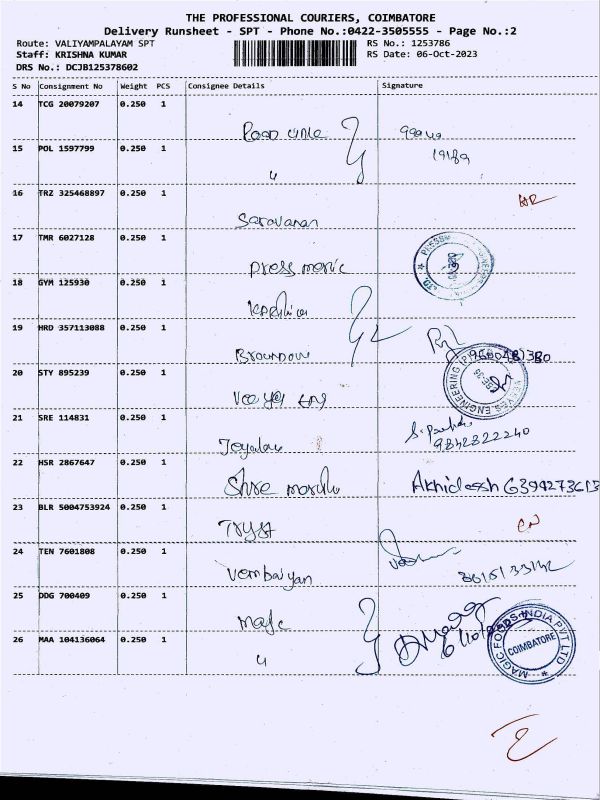 THE PROFESSIONAL COURIERS, COIMBATORE
Delivery Runsheet - SPT - Phone No.:0422-3505555 - Page No.:2
Route: VALIYAMPALAYAM SPT
RS No.: 1253786
Staff: KRISHNA KUMAR
RS Date: 06-Oct-2023
DRS No.: DCJB125378602
S No Consignment No Weight PCS Consignee Details Signature
14 TCG 20079207 0.250 1
15 POL 1597799 0.250 1
"
16 TRZ 325468897 0.250 1
Saravanan
17 TMR 6027128 0.250 1
Press
18 GYM 125930 0.250 1
19 HRD 357113088 0.250 1
20 STY 895239 0.250 1
ENGINEERING
21 SRE 114831 0.250 1
9842322240
22 HSR 2867647 0.250 1
Shre
Akhidessh 6394273613
23 BLR 5004753924 0.250 1
TRYST
24 TEN 7601808 0.250 1
Vembaiyan
25 DDG 700409 0.250 1
26 MAA 104136064 0.250 1
"
MAGIC FOODS INDIA PVT LTD
COIMBATORE